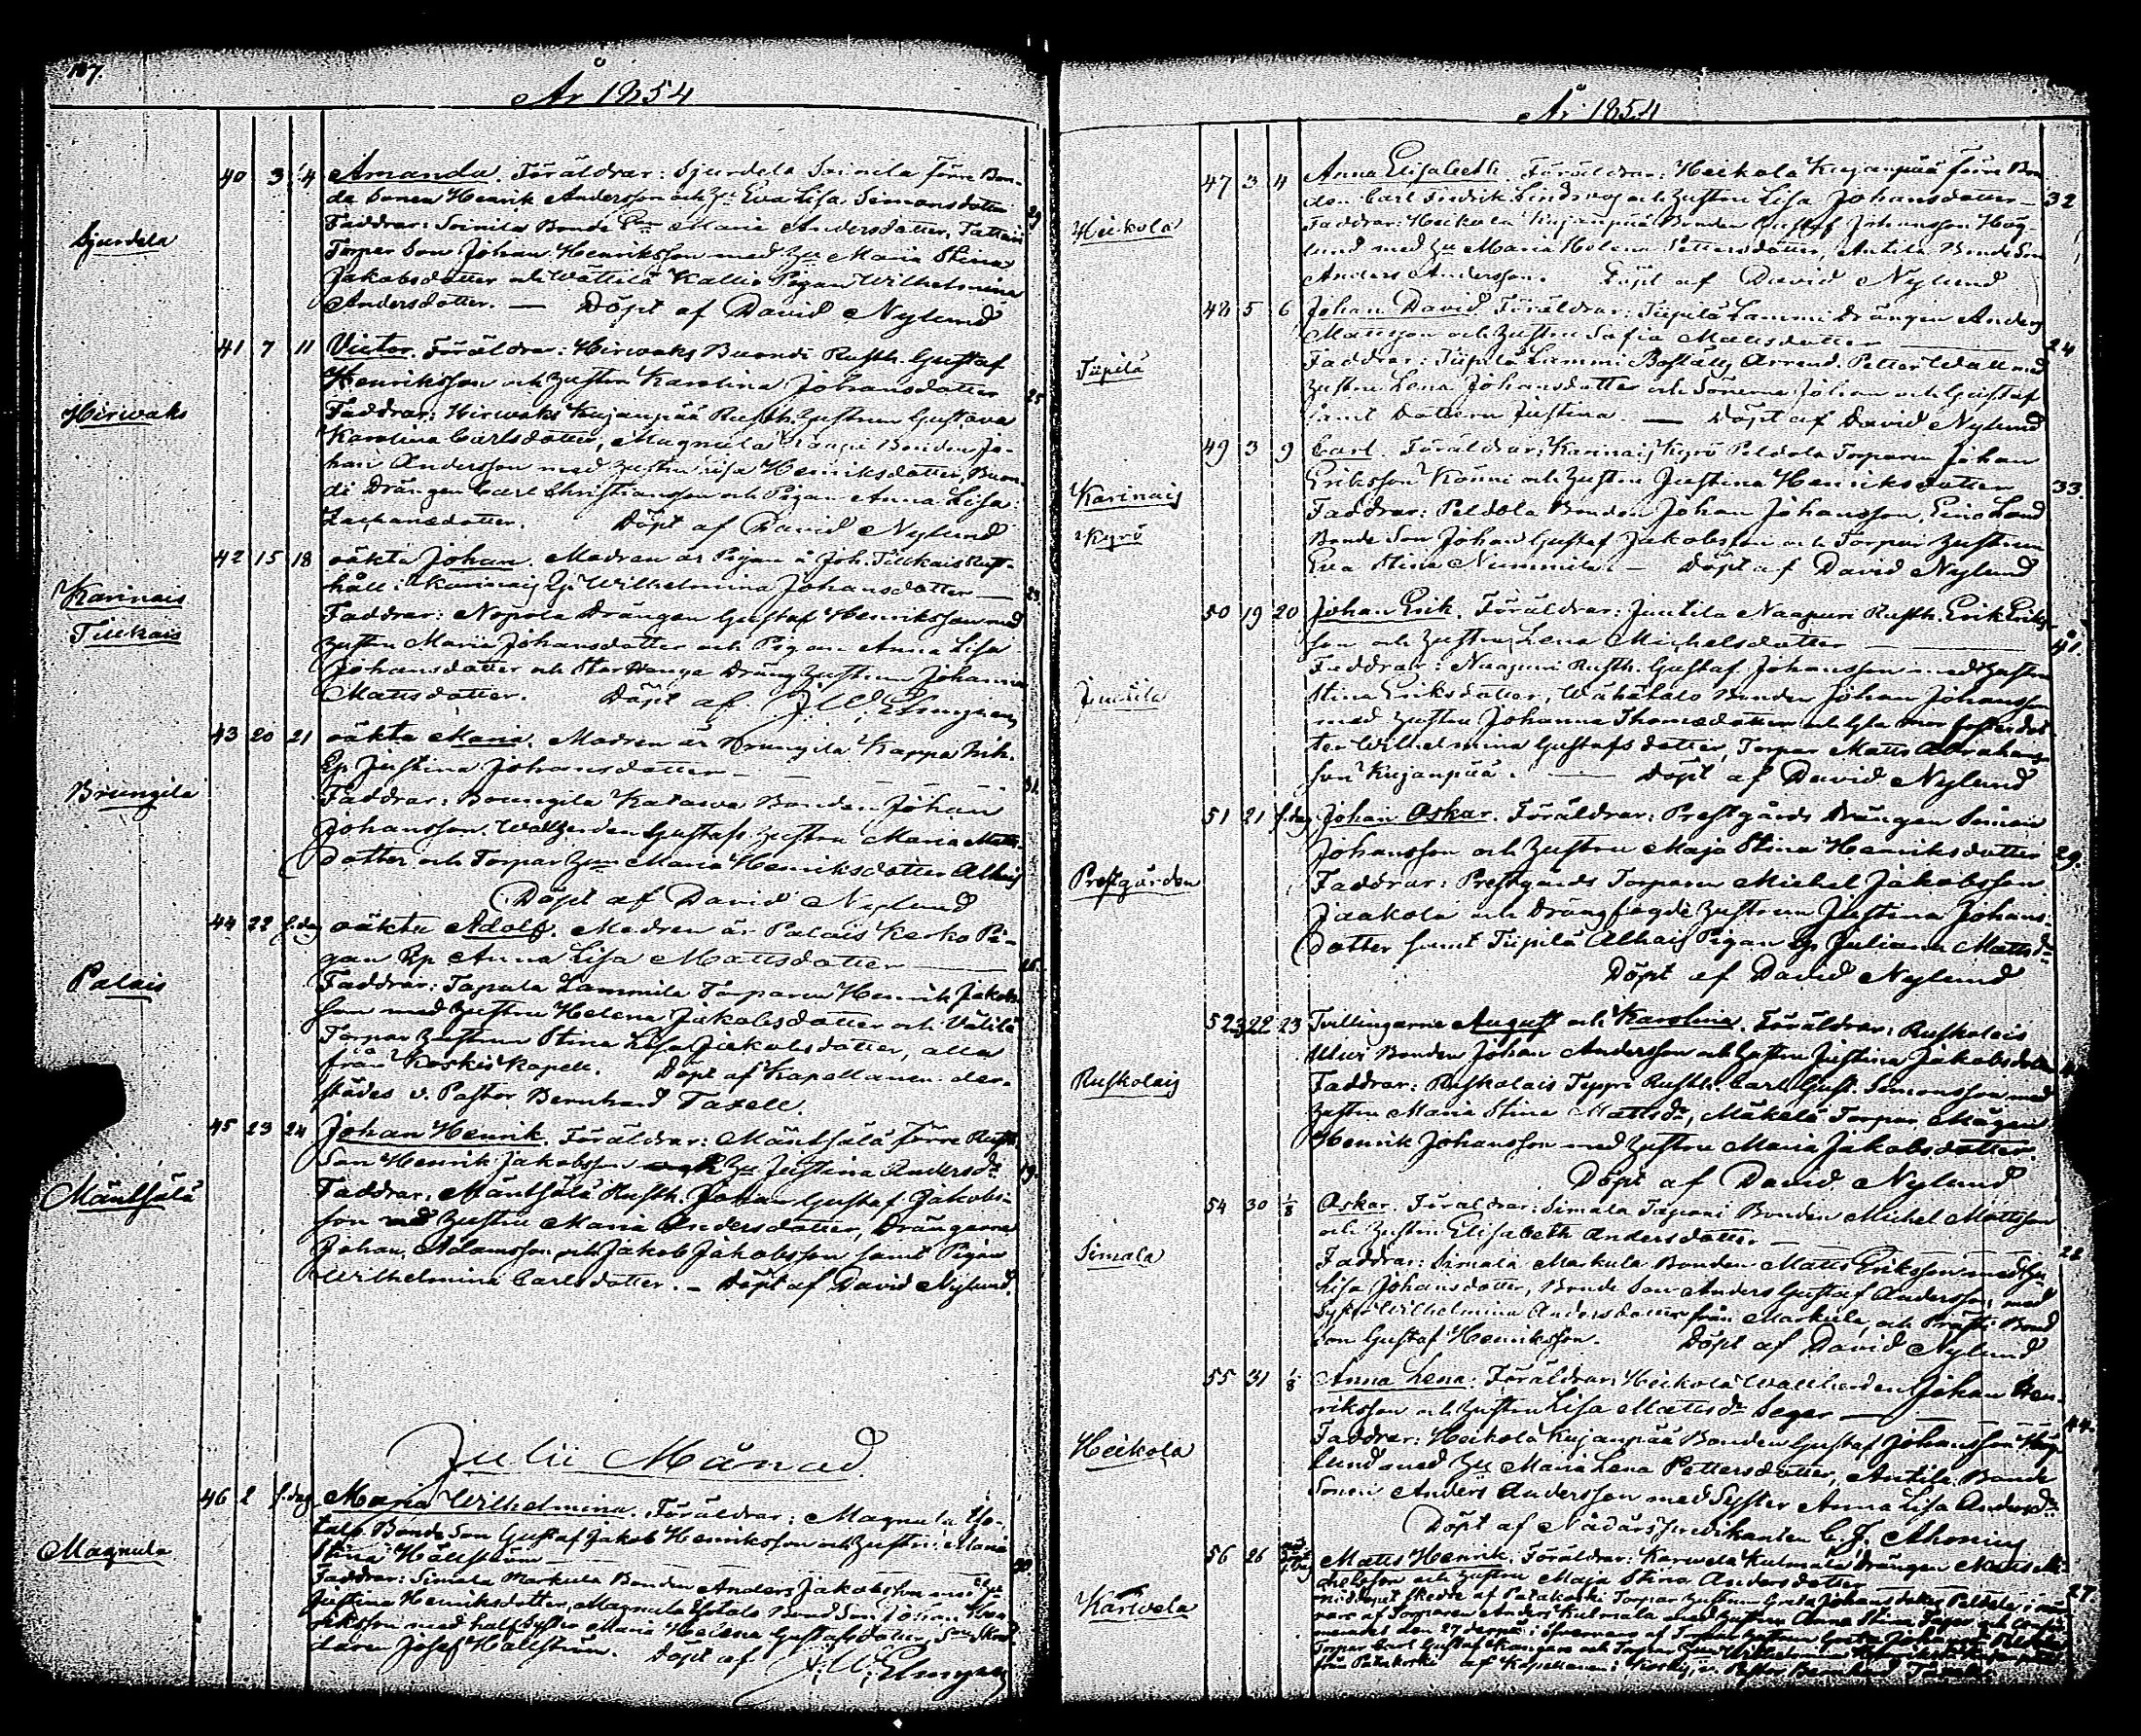 187.
År 1854
Sjurdela
40 3 4 Amanda. Föräldrar: Sjurdela Soinila förre Bon-
de Sonen Henrik Andersson och Hu Eva Lisa Simonsdotter 29
Faddrar: Soinila Bonde Maria Andersdotter, Tattari
Torpar Son Johan Henriksson med Hu Maria Stina
Jakobsdotter och Wättilä Kallio Pigan Wilhelmina
Andersdotter. — Döpt af David Nylund
Hirwaks
41 7 11 Victor. Föräldrar: Hirwaks Buondi Rusth. Gustaf
Henriksson och hustru Karolina Johansdotter 25
Faddrar: Hirwaks Kujanpää Rusth. hustrun Gustava
Karolina Carlsdotter, Magnula Bonden Jo-
han Andersson med hustru Lisa Henriksdotter, Buon-
di Drängen Carl Christiansson och Pigan Anna Lisa
Zachariedotter. Döpt af David Nylund
Karinais
Tiukais
42 15 18 oäkta Johan. Modren är Pigan å Joh. Tiukais Rust-
håll i Karinais Q. Wilhelmina Johansdotter — 23
Faddrar: Nopola Drängen Gustaf Henriksson med
hustru Maria Johansdotter och Pigan Anna Lisa
Johansdotter och Stor Dräng hustrun Johanna
Mattsdotter. Döpt af J. W. Elmgren
Brungila
43 20 21 oäkta Maria. Modren är Brungila Kappa
Ep. Justina Johansdotter — 31.
Faddrar: Brungila Katawa Bonden Johan
Johansson, Wallherden Gustafs hustru Maria Matts-
dotter och Torpar Hun Maria Henriksdotter Alhais
Döpt af David Nylund
Palais
44 22 s. dag oäkta Adolf. Modren är Palais Kerko Pi-
gan Ep Anna Lisa Mattsdotter — 26.
Faddrar: Tapala Lammila Torparen Henrik Jakobs-
son med hustru Helena Jakobsdotter och Välilä
Torpar hustrun Stina Lisa Jakobsdotter, alla
från Koskis Kapell. Döpt af Kapellanen der-
städes v. Pastor Bernhard Taxell.
Mäntsälä
45 23 24 Johan Henrik. Föräldrar: Mäntsälä förre Rusth.
Son Henrik Jakobsson Hu Justina Andersdr 19.
Faddrar: Mäntsälä Rusth. Johan Gustaf Jakobs-
son med hustru Maria Andersdotter, Drängarne
Johan Adamsson och Jakob Jakobsson samt Pigan
Wilhelmina Carlsdotter. — Döpt af David Nylund.
Julii Månad
Magnula
46 2 s. dag Maria Wilhelmina. Föräldrar: Magnula Yö-
talo Bonde Son Gustaf Jakob Henriksson och hustru Maria
Stina Hällström — 30.
Faddrar: Simala Markula Bonden Anders Jakobsson med Hu
Justina Henriksdotter, Magnula Yötalo Bond Son Johan Hen-
riksson med half syster Maria Helena Gustafsdotter, Skräd-
daren Josef Hällström. Döpt af J. W. Elmgren
År 1854
Heikola
47 3 4 Anna Elisabeth. Föräldrar: Heikola Kujanpää förre Bon-
den Carl Fredrik Lindroos och hustru Lisa Johansdotter — 32
Faddrar: Heikola Kujanpää Bonden Gustaf Johansson Hög-
lund med Hu Maria Helena Pettersdotter, Antila Bonde Son
Anders Andersson. Döpt af David Nylund
Tiipilä
48 5 6 Johan David. Föräldrar: Tiipilä Lammi Drängen Anders
Mattsson och hustru Sofia Mattsdotter — 24
Faddrar: Tiipilä Lammi Boställs Arrend. Petter Wall med
hustru Lena Johansdotter och Sönerne Johan och Gustaf
samt Dottern Justina. — Döpt af David Nylund
Karinais
Kyrö
49 3 9 Carl. Föräldrar: Karinais Kyrö Peldola Torparen Johan
Eriksson Könni och hustru Justina Henriksdotter 33.
Faddrar: Peldola Bonden Johan Johansson, Eino Land
Bonde Son Johan Gustaf Jakobsson och Torpar hustrun
Eva Stina Nummila. — Döpt af David Nylund
Juntila
50 19 20 Johan Erik. Föräldrar: Juntila Naapuri Rusth. Erik Eriks-
son och hustru Lena Michelsdotter — 41.
Faddrar: Naapuri Rusth. Gustaf Johansson med hustru
Stina Eriksdotter, Wähätalo Bonden Johan Johansson
med hustru Johanna Thomsdotter och
Wilhelmina Gustafsdotter, Torpar Matts Abrahams-
son Kujanpää. — Döpt af David Nylund
Prestgården
51 21 s. dag Johan Oskar. Föräldrar: Prestgårds Drängen Simon
Johansson och hustru Maja Stina Henriksdotter 29.
Faddrar: Prestgårds Torparen Michel Jakobsson
Jaakola och Drängfogde hustrun Justina Johans-
dotter samt Tiipilä Alhais Pigan Ep Juliana Mattsdr
Döpt af David Nylund
Ruskolais
52 53 22 23 Tvillingarne August och Karolina. Föräldrar: Ruskolais
Ulwi Bonden Johan Andersson och hustru Justina Jakobsdotter
Faddrar: Ruskolais Teppo Rusth. Carl Gust. Simonsson med
hustru Maria Stina Mattsdr, Mäkelä Torpar Mågen
Henrik Johansson med hustru Maria Jakobsdotter.
Döpt af David Nylund
Simala
54 30 1/8 Oskar. Föräldrar: Simala Tapani Bonden Michel Mattsson
och hustru Elisabeth Andersdotter. — 22
Faddrar: Simala Markula Bonden Matts Eriksson med Hu
Lisa Johansdotter, Bonde Son Anders Gustaf Andersson, med
Syster Wilhelmina Andersdotter från Markula, och Prästi Bond
Son Gustaf Henriksson. Döpt af David Nylund
Heikola
55 31 1/8 Anna Lena. Föräldrar: Heikola Wallherden Johan Hen-
riksson och hustru Lisa Mattsdr Seger — 44.
Faddrar: Heikola Kujanpää Bonden Gustaf Johansson Hög-
lund med Hu Maria Lena Pettersdotter, Antila Bonde
Sonen Anders Andersson med Syster Anna Lisa Andersdr
Döpt af Nådårs predikanten C. J. Ahoning
Karwela
56 26 Matts Henrik. Föräldrar: Karwela Kulmala Drängen Matts Mi-
chelsson och hustru Maja Stina Andersdotter 27.
Nöddopet skedde af Patakoski Torpar hustrun Greta Johansdotter Peldola i när-
varo af Torparen Anders Kulmala med hustru Anna Stina Jager och confir-
merades den 27 i af Torpar hustrun Greta
Torpar Carl Gustaf och Torpar Wilhelmina
från Patakoski af Kapellanen i Koskis, v. Pastor Bernhard Taxell.